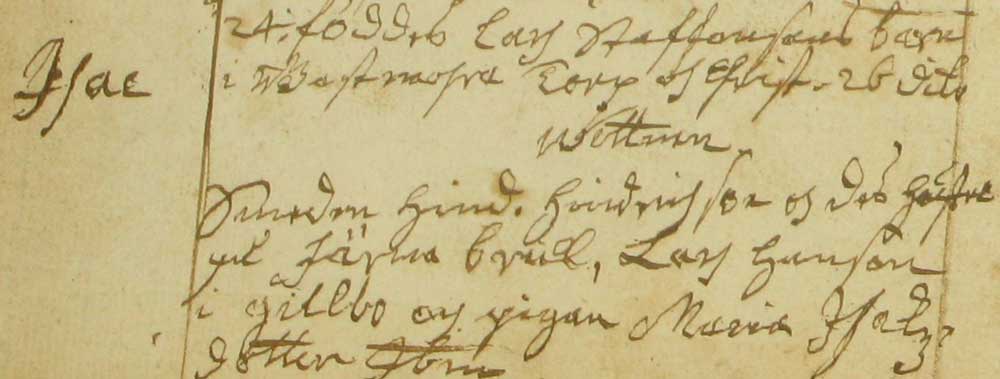 Isac
24. föddes Lars Staffansons barn
i Wastmosse Torp och Christ. 26 dito
Wettnen
Smeden Hind. Hindrichson och des hustru
på Färna bruk, Lars Hanson
i Gillbo och pigan Maria Isaks
dotter Ibm